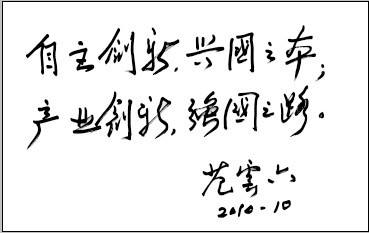 自主创新,兴國之本;
产业创新,强國之路。
范雲六
2010-10